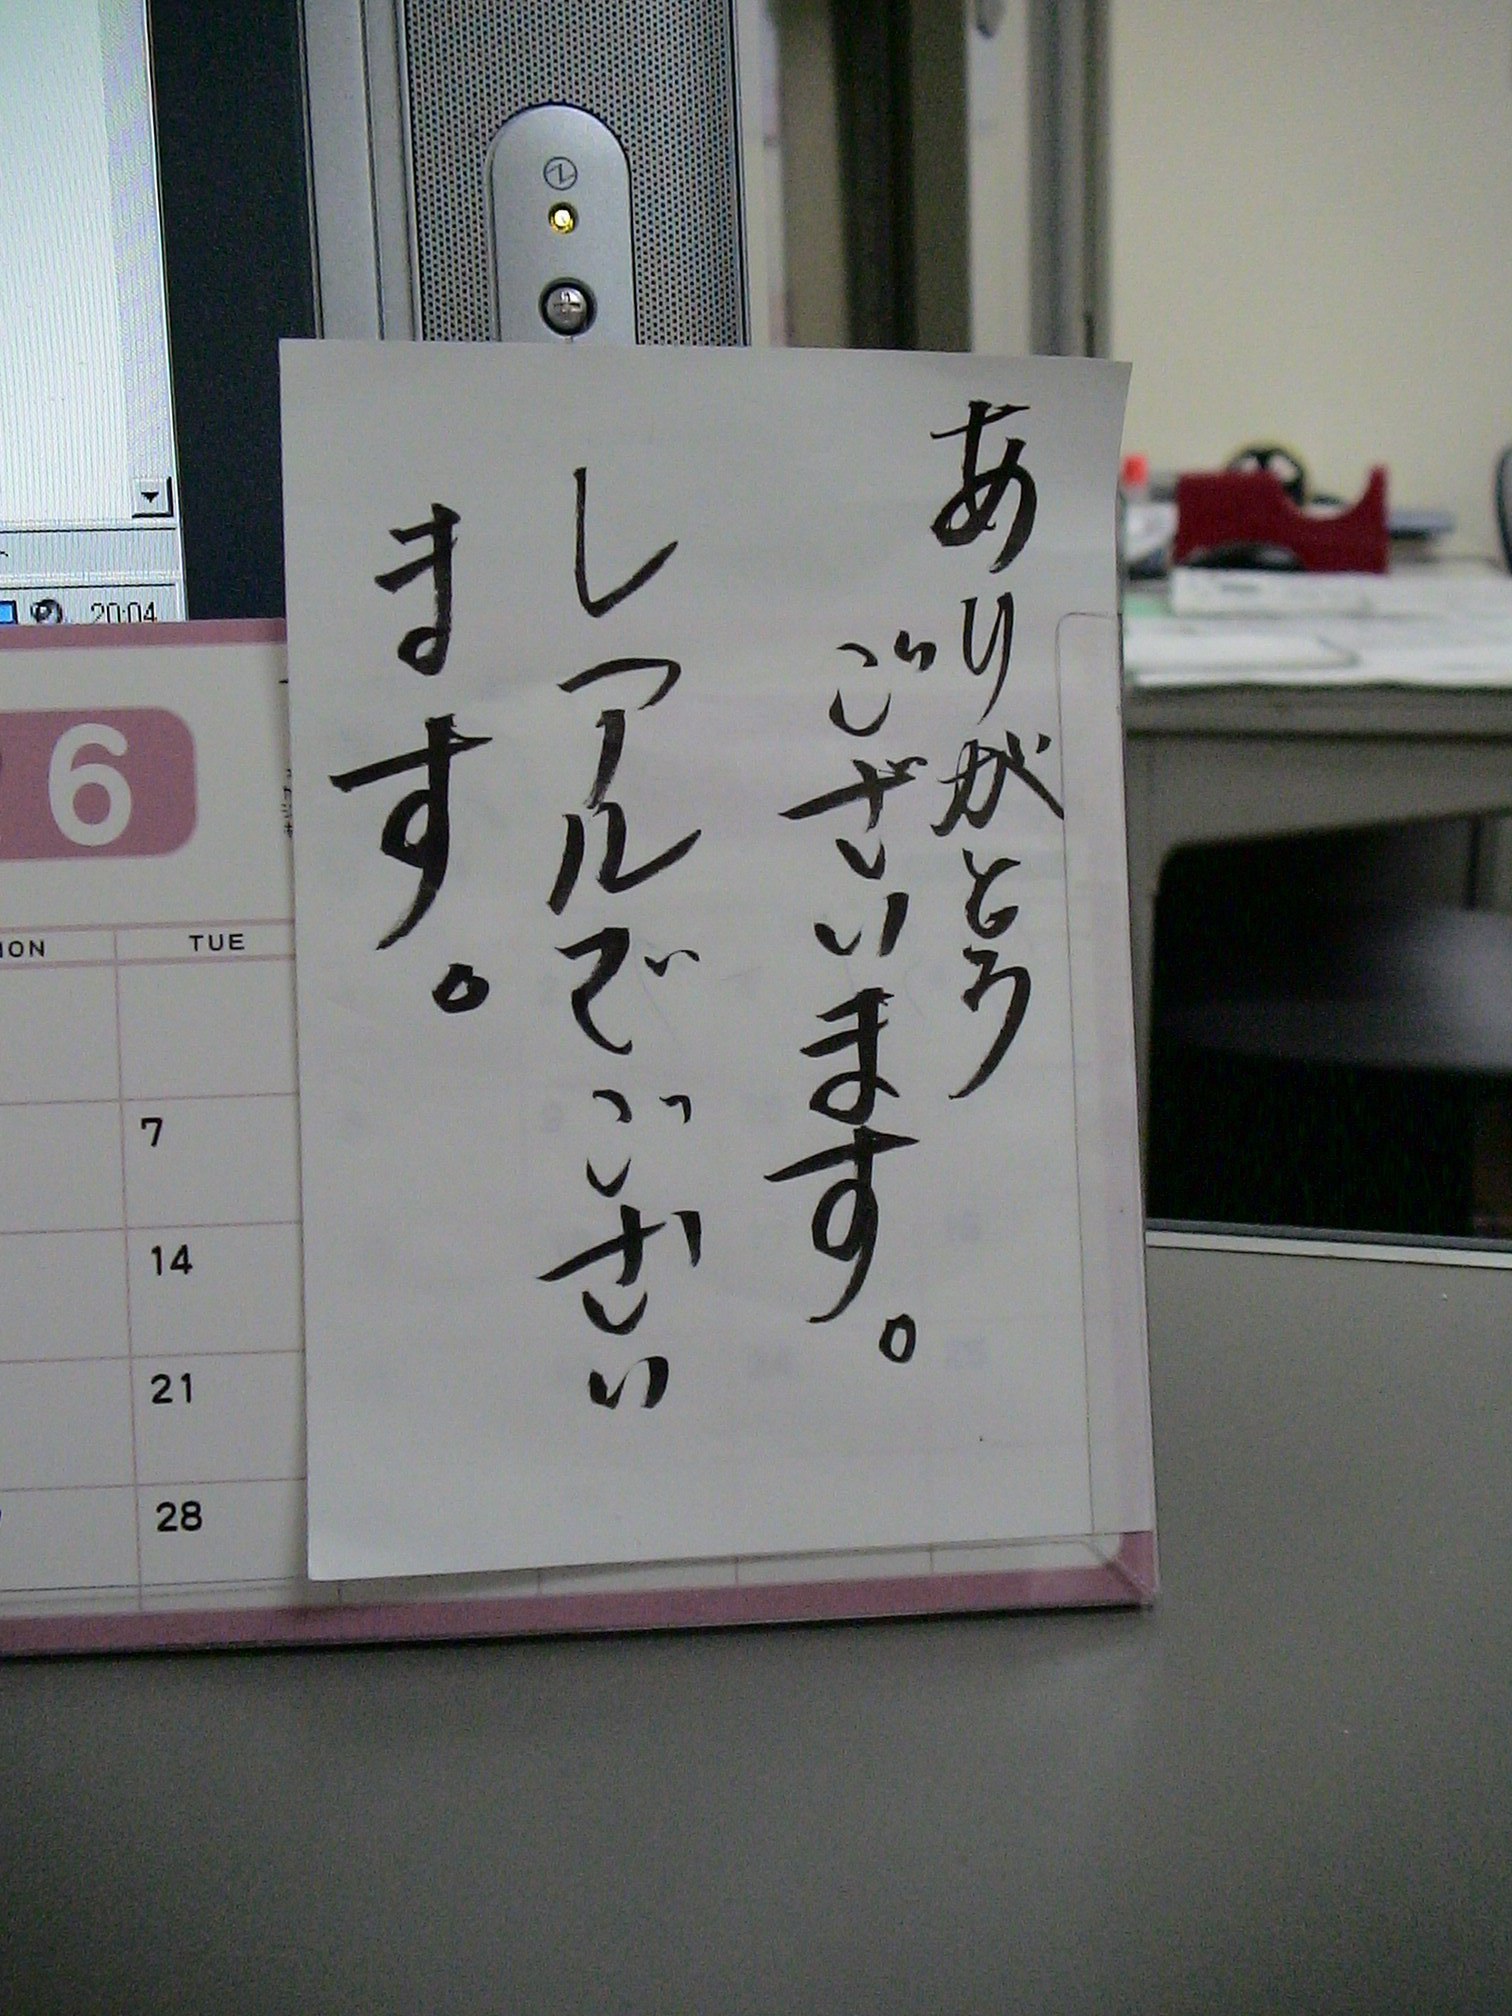 ありがとう
ございます。
レアルでござい
ます。
20:04
6
TUE
7
14
21
28